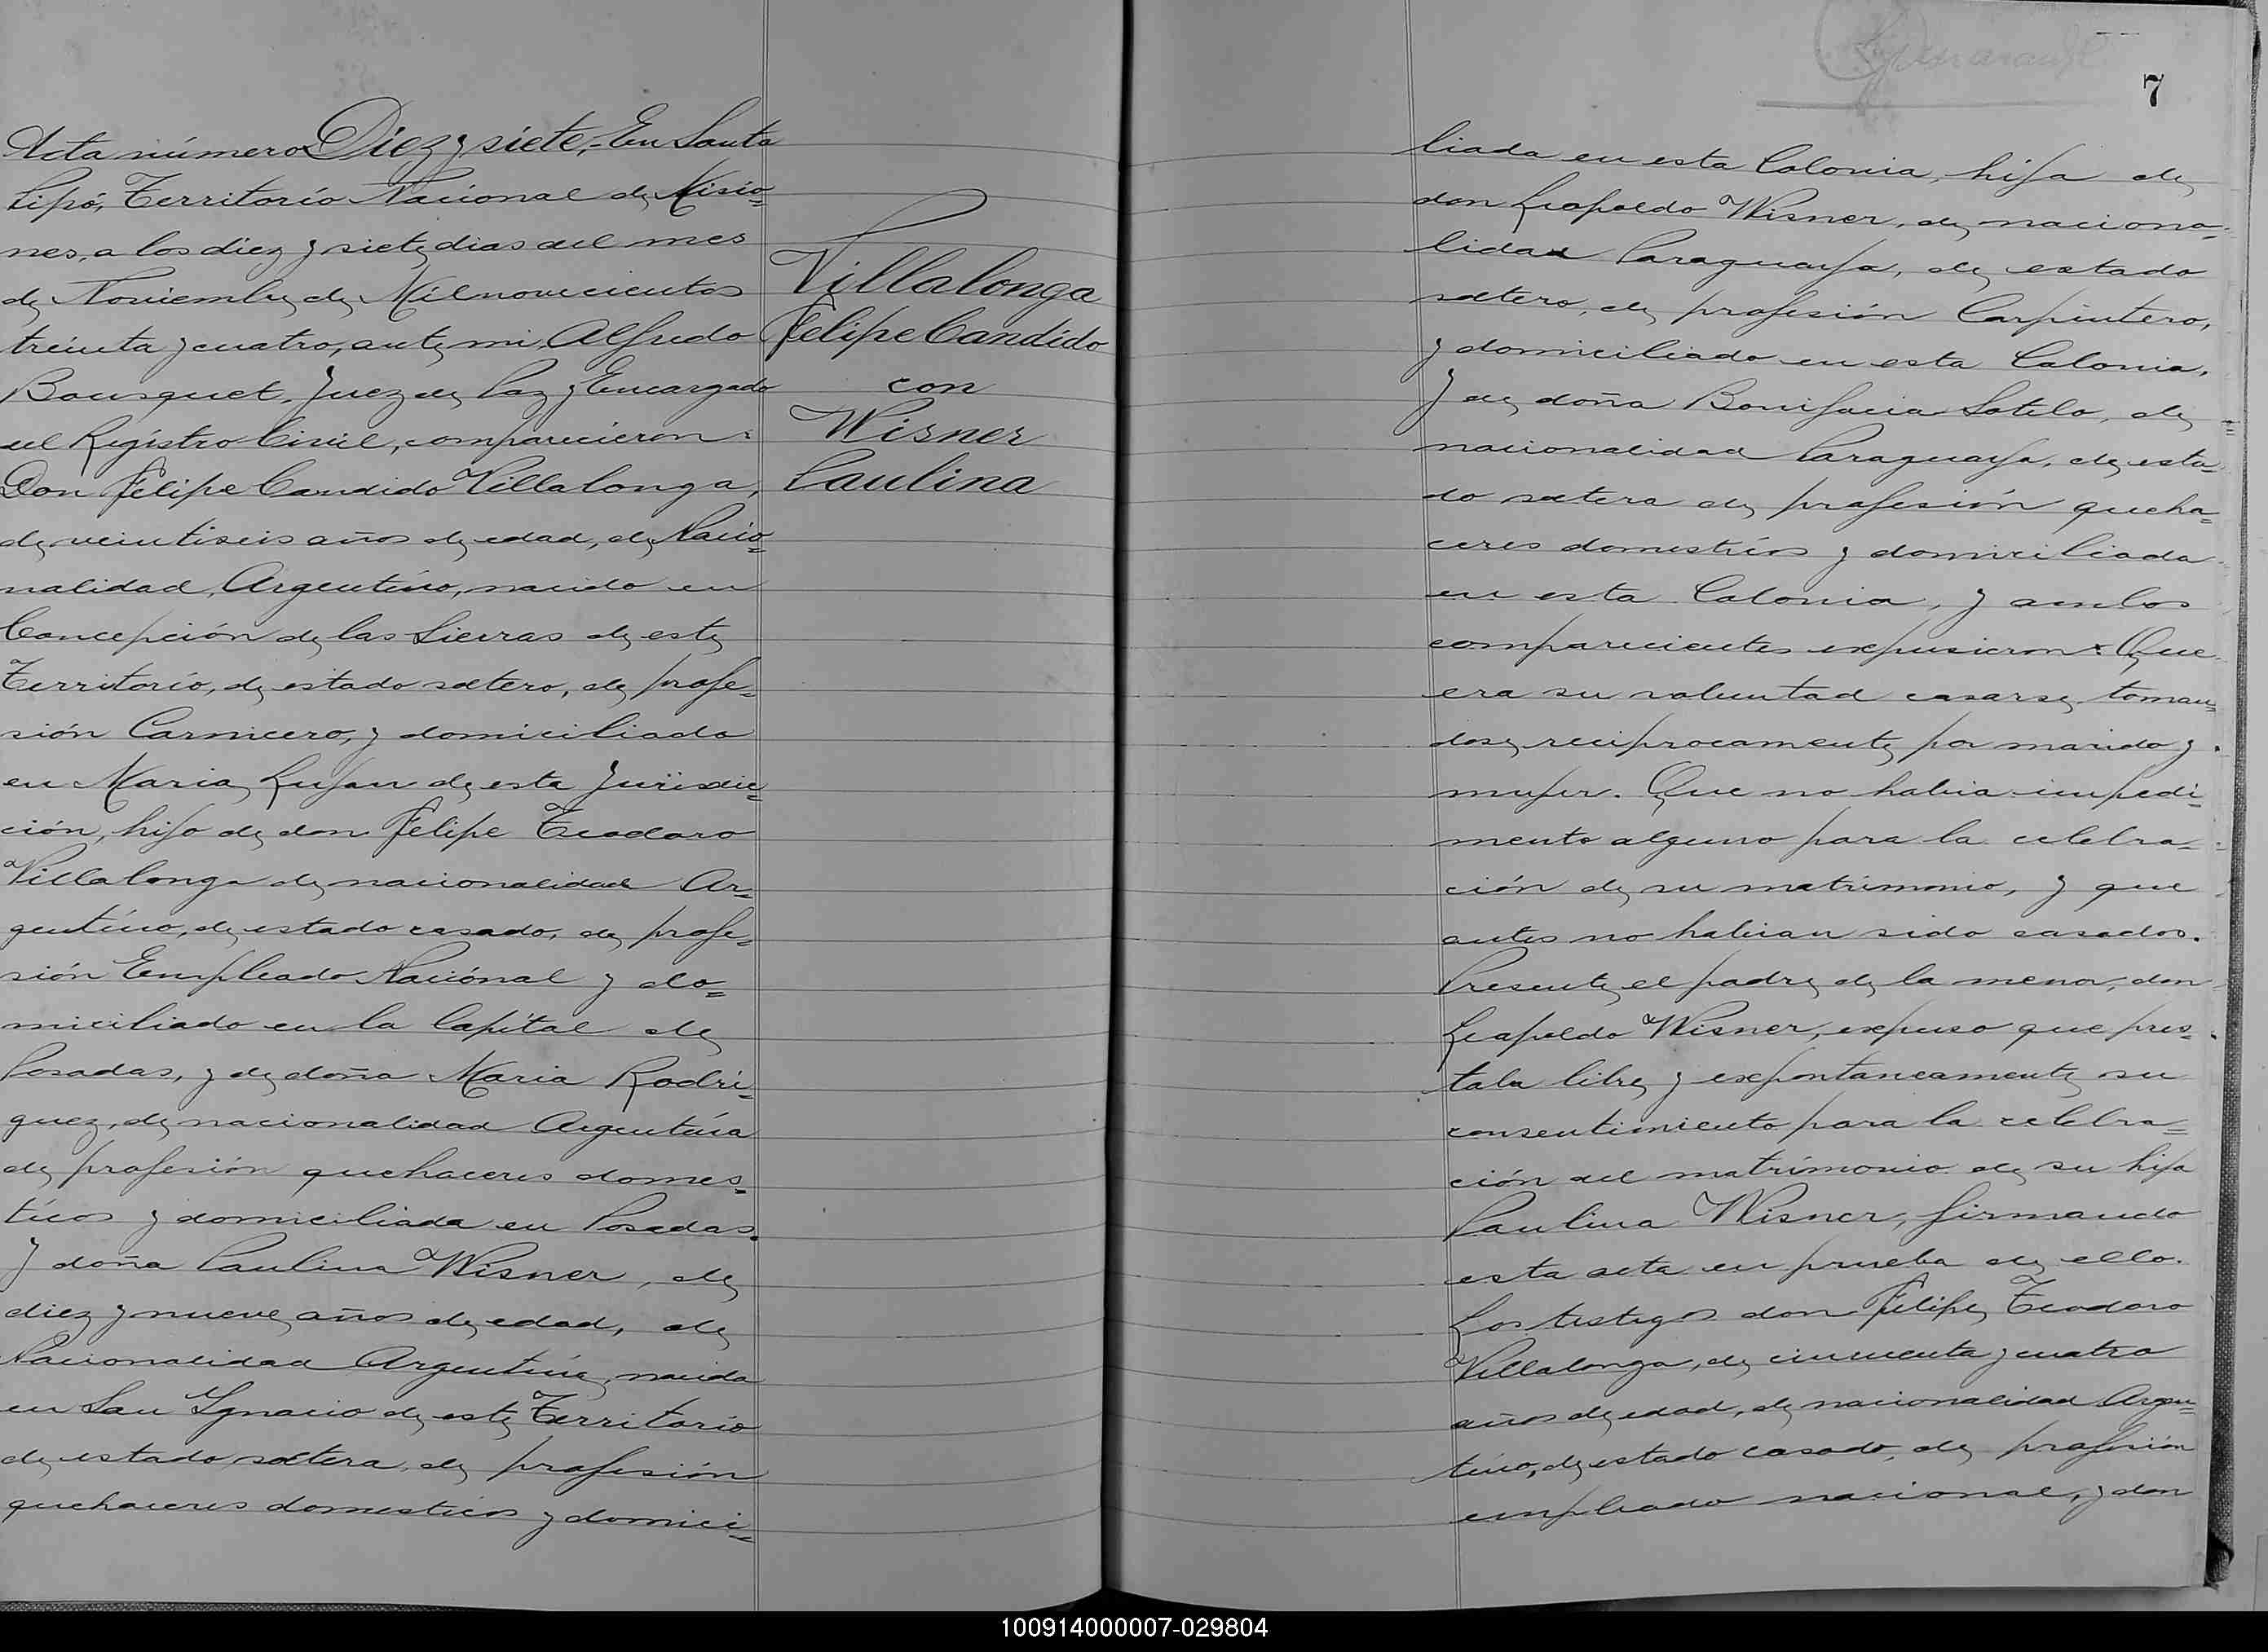 Acta número Diez y siete,- En Santa
Lipó, Territorio Nacional de Misio=
nes, a los diez y siete dias del mes
de Noviembre de Mil novecientos
treinta y cuatro, ante mi, Alfredo
Bousquet, Juez de Paz y Encargado
del Registro Civil, comparecieron:
Don Felipe Candido Villalonga,
de veintiseis años de edad, de Nacio=
nalidad, Argentino, nacido en
Concepción de las Sierras de este
Territorio, de estado soltero, de profe=
sión Carnicero, y domiciliado
en Maria Lujan de esta Jurisdic=
ción, hijo de don Felipe Teodoro
Villalonga de nacionalidad Ar=
gentino, de estado casado, de profe=
sión Empleado Nacional y do=
miciliado en la Capital de
Posadas, y de doña Maria Rodri=
guez, de nacionalidad Argentina
de profesión quehaceres domes=
ticos y domiciliada en Posadas.
Y doña Paulina Wisner, de
diez y nueve años de edad, de
Nacionalidad Argentina, nacida
en San Ygnacio de este Territorio
de estado soltera, de profesión
quehaceres domesticos y domici=
Villalonga
Felipe Candido
con
Wisner
Paulina
7
liada en esta Colonia, hija de
don Leopoldo Wisner, de naciona=
lidad Paraguaya, de estado
soltero, de profesión Carpintero,
y domiciliado en esta Colonia,
y de doña Bonifacia Sotelo, de
nacionalidad Paraguaya, de esta
do soltera de profesión queha=
ceres domesticos y domiciliada
en esta Colonia, y ambos
comparecientes expusieron: Que
era su voluntad casarse, toman=
dose reciprocamente por marido y
mujer. Que no habia impedi=
mento alguno para la celebra=
ción de su matrimonio, y que
antes no habian sido casados.
Presente el padre de la menor, don
Leopoldo Wisner, expuso que pres=
taba libre y expontaneamente su
consentimiento para la celebra=
ción del matrimonio de su hija
Paulina Wisner, firmando
esta acta en prueba de ello.
Los testigos don Felipe Teodoro
Villalonga, de cincuenta y cuatro
años de edad, de nacionalidad Argen=
tino, de estado casado, de profesión
empleado nacional, y don
100914000007-029804